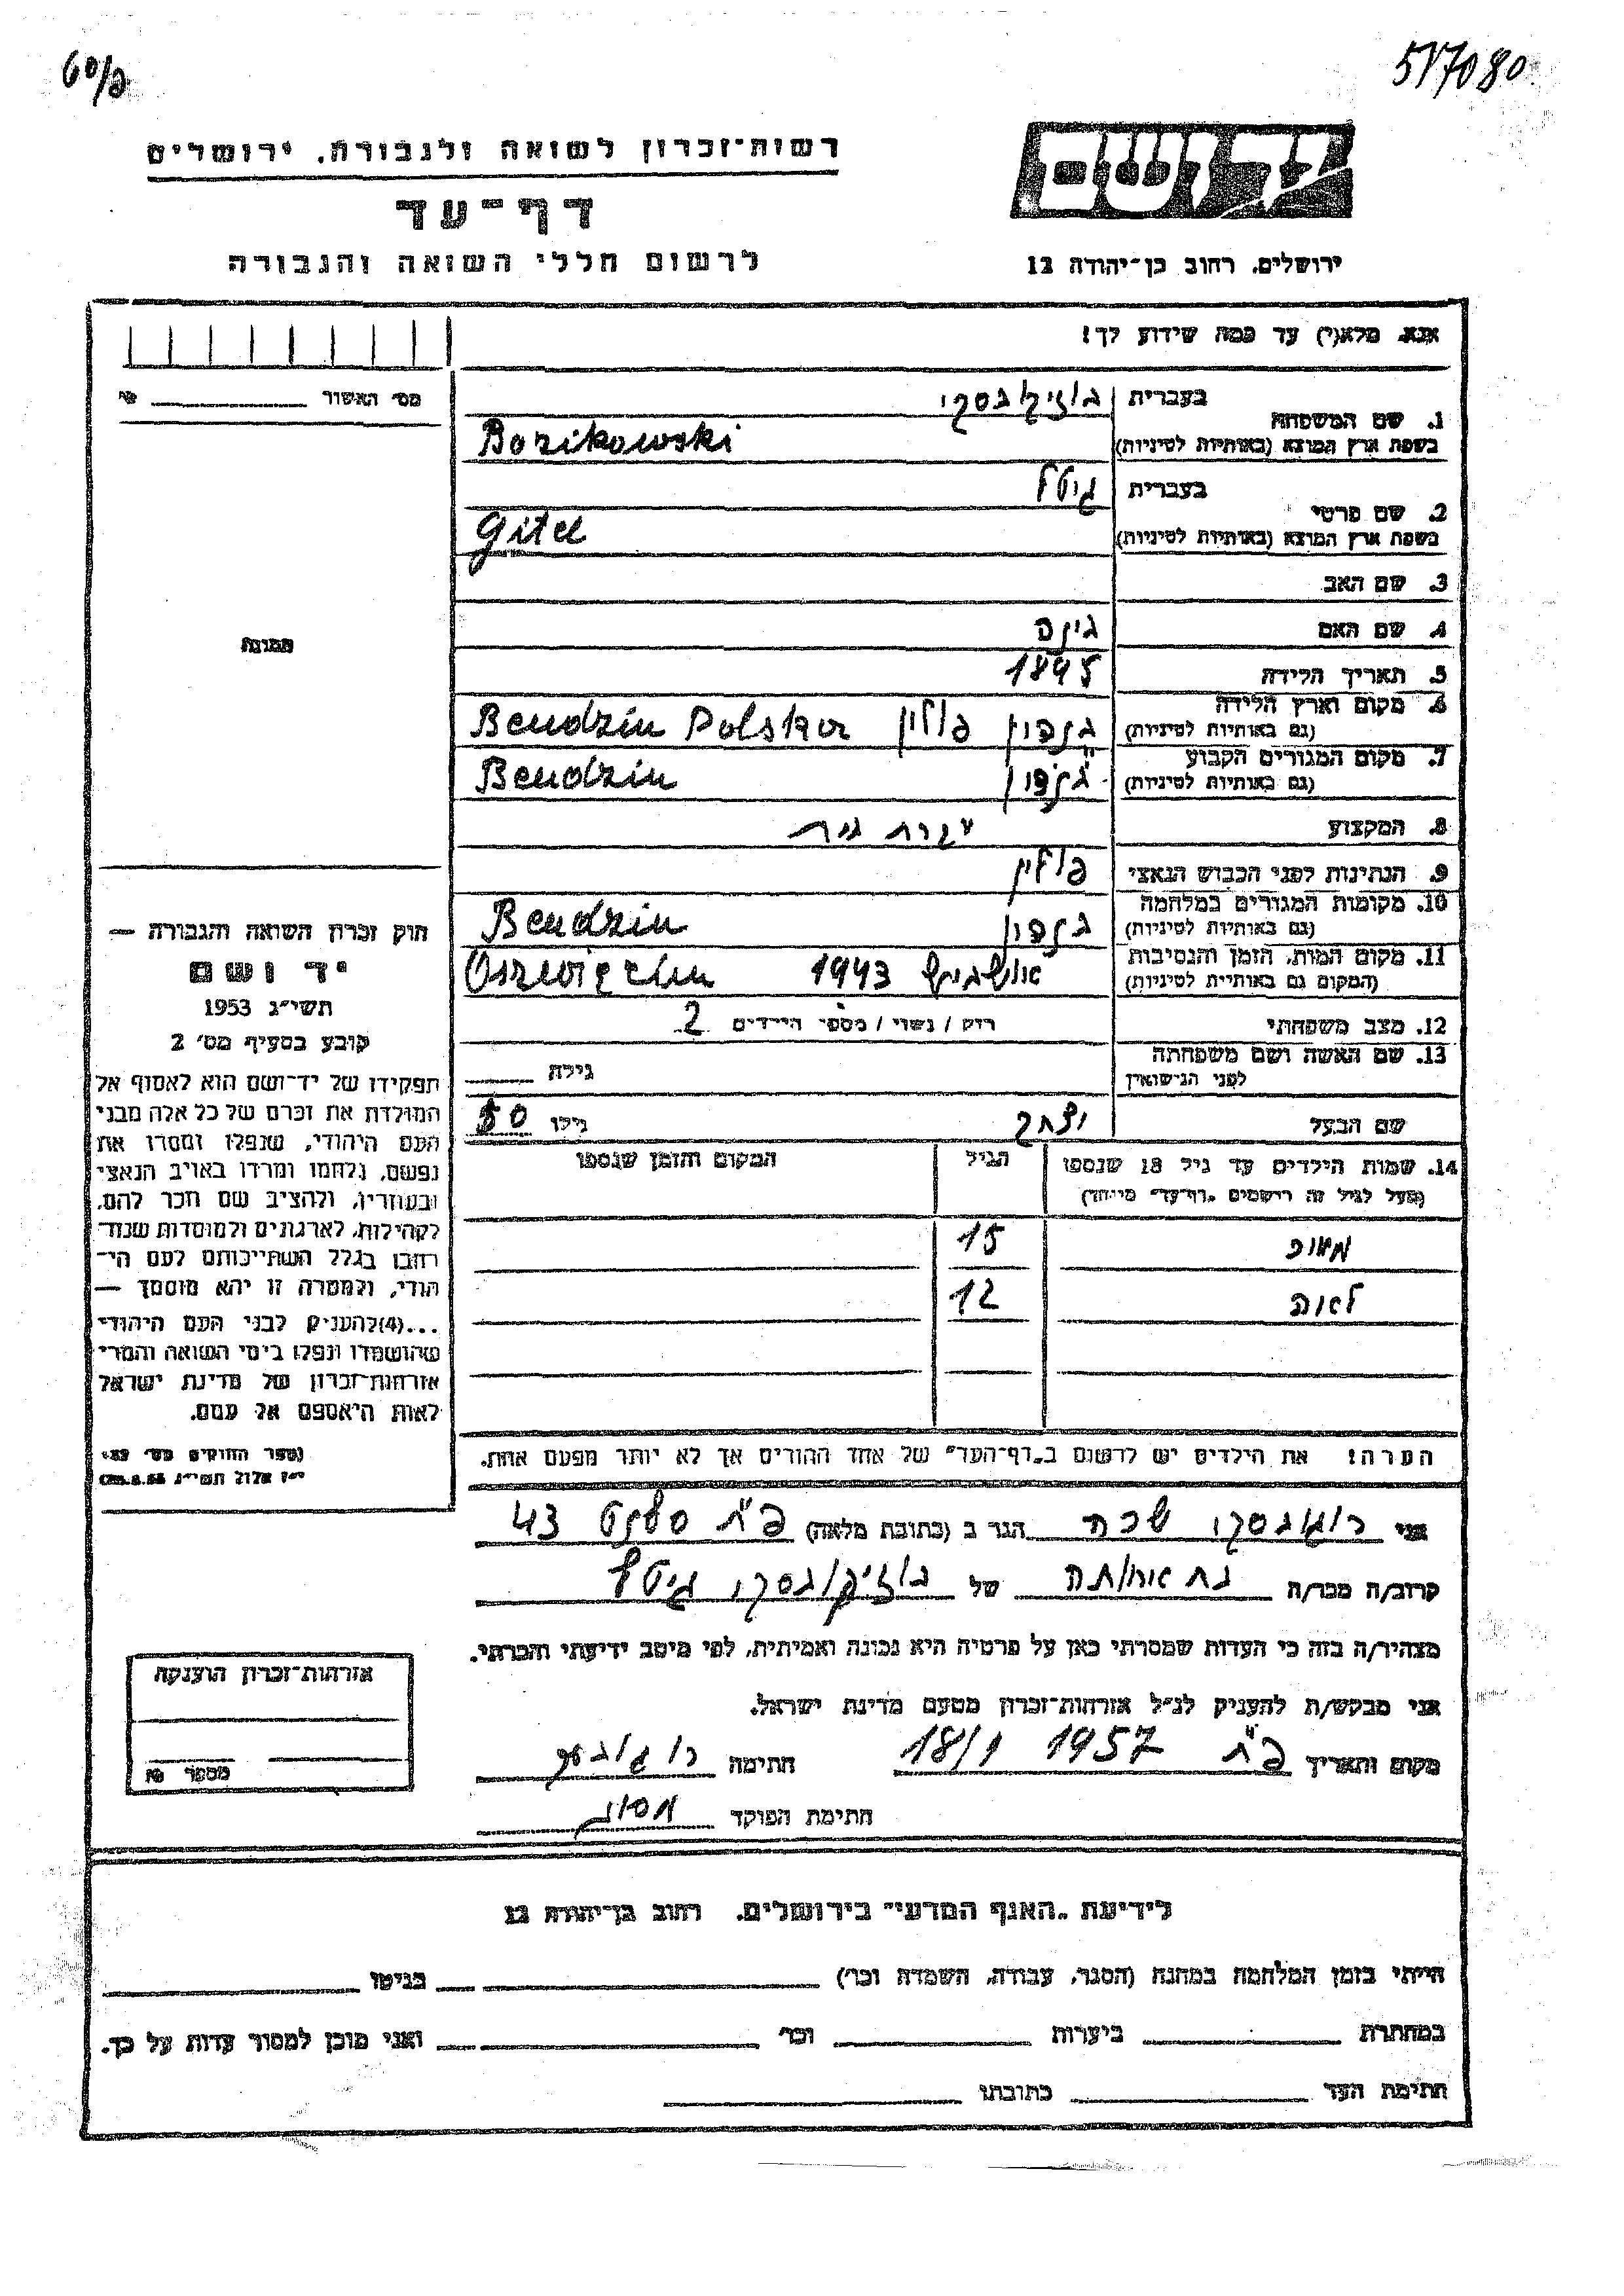 60/פ
517080
רשות־זכרון לשואה ולגבורה. ירושלים
דף־עד
לרשום חללי השואה והגבורה
יד ושם
ירושלים. רחוב בן־יהודה 12
אנא, מלא(י) עד כמה שידוע לך!
מס׳ האשור
1. שם המשפחה
בעברית בוזיקובסקי
בשפת ארץ המוצא (באותיות לטיניות) Bozikowski
2. שם פרטי
בעברית גיטל
בשפת ארץ המוצא (באותיות לטיניות) Gitel
3. שם האב
4. שם האם
5. תאריך הלידה 1895
6. מקום וארץ הלידה
(גם באותיות לטיניות) בנדין פולין Bendzin Polska
7. מקום המגורים הקבוע
(גם באותיות לטיניות) בנדין Bendzin
8. המקצוע עקרת בית
9. הנתינות לפני הכבוש הנאצי פולין
10. מקומות המגורים במלחמה
(גם באותיות לטיניות) בנדין Bendzin
11. מקום המות, הזמן והנסיבות
(המקום גם באותיות לטיניות) אושביץ 1943
12. מצב משפחתי רוק / נשוי / מספר הילדים 2
13. שם האשה ושם משפחתה
לפני הנישואין גילה
שם הבעל יצחק גילו 50
14. שמות הילדים עד גיל 18 שנספו
(מעל לגיל זה רושמים „דף־עד״ מיוחד)
הגיל
המקום והזמן שנספו
15
לאה 12
הערה! את הילדים יש לרשום ב„דף־העד״ של אחד ההורים אך לא יותר מפעם אחת.
תמונה
חוק זכרון השואה והגבורה —
יד ושם
תשי״ג 1953
קובע בסעיף מס׳ 2
תפקידו של יד־ושם הוא לאסוף אל
המולדת את זכרם של כל אלה מבני
העם היהודי, שנפלו ומסרו את
נפשם, נלחמו ומרדו באויב הנאצי
ובעוזריו, ולהציב שם וזכר להם,
לקהילות, לארגונים ולמוסדות שנח־
רבו בגלל השתייכותם לעם הי־
הודי, ולמטרה זו יהא מוסמך —
...(4)להעניק לבני העם היהודי
שהושמדו ונפלו בימי השואה והמרי
אזרחות־זכרון של מדינת ישראל
לאות היאספם אל עמם.
(ספר החוקים מס׳ 132
י״ז אלול תשי״ג 28.8.53)
אני הגר ב (כתובת מלאה) פ״ת 43
קרוב/ה מכר/ה בת אחותה של בוזיקובסקי גיטל
מצהיר/ה בזה כי העדות שמסרתי כאן על פרטיה היא נכונה ואמיתית, לפי מיטב ידיעתי והכרתי.
אני מבקש/ת להעניק לנ״ל אזרחות־זכרון מטעם מדינת ישראל.
מקום ותאריך פ״ת 1957 18/1 חתימה
חתימת הפוקד
אזרחות־זכרון הוענקה
מספר
לידיעת „האגף המדעי״ בירושלים. רחוב בן־יהודה 12
הייתי בזמן המלחמה במחנה (הסגר, עבודה, השמדה וכו׳) בגיטו
במחתרת ביערות וכו׳ ואני מוכן למסור עדות על כך.
חתימת העד כתובתו